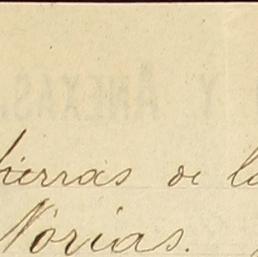 Y ANEXAS.
tierras de la
Norias.